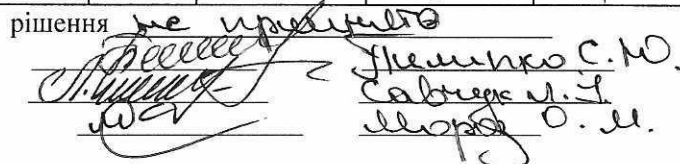 рішення не прийнято
Пилипко С. Ю.
Савчук Л. І.
Мороз О. М.